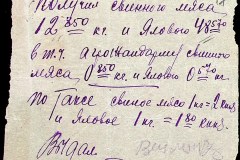 получил свинного мяса
12 850 кг. и яловово 48 570
в т.ч. а посжандарме свиного
мяса 0 850 кг. и ялового 0 570 кг.
по таксе свиное мясо 1кг = 2 
и яловое 1кг. = 1 80
Выдал